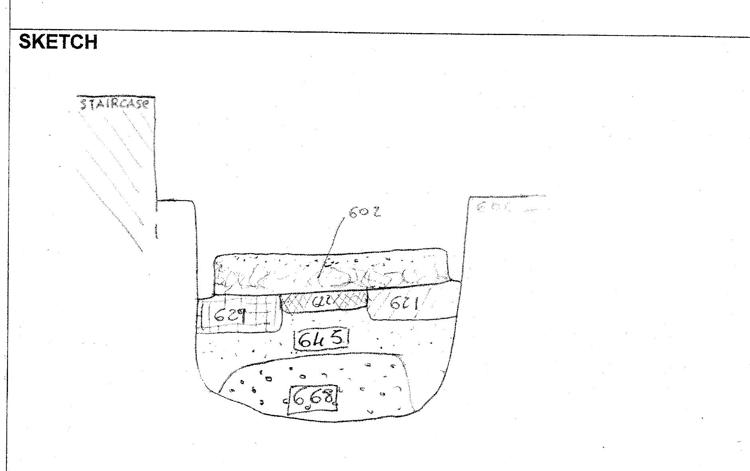 SKETCH
STAIRCASE
602
629
622
621
645
668